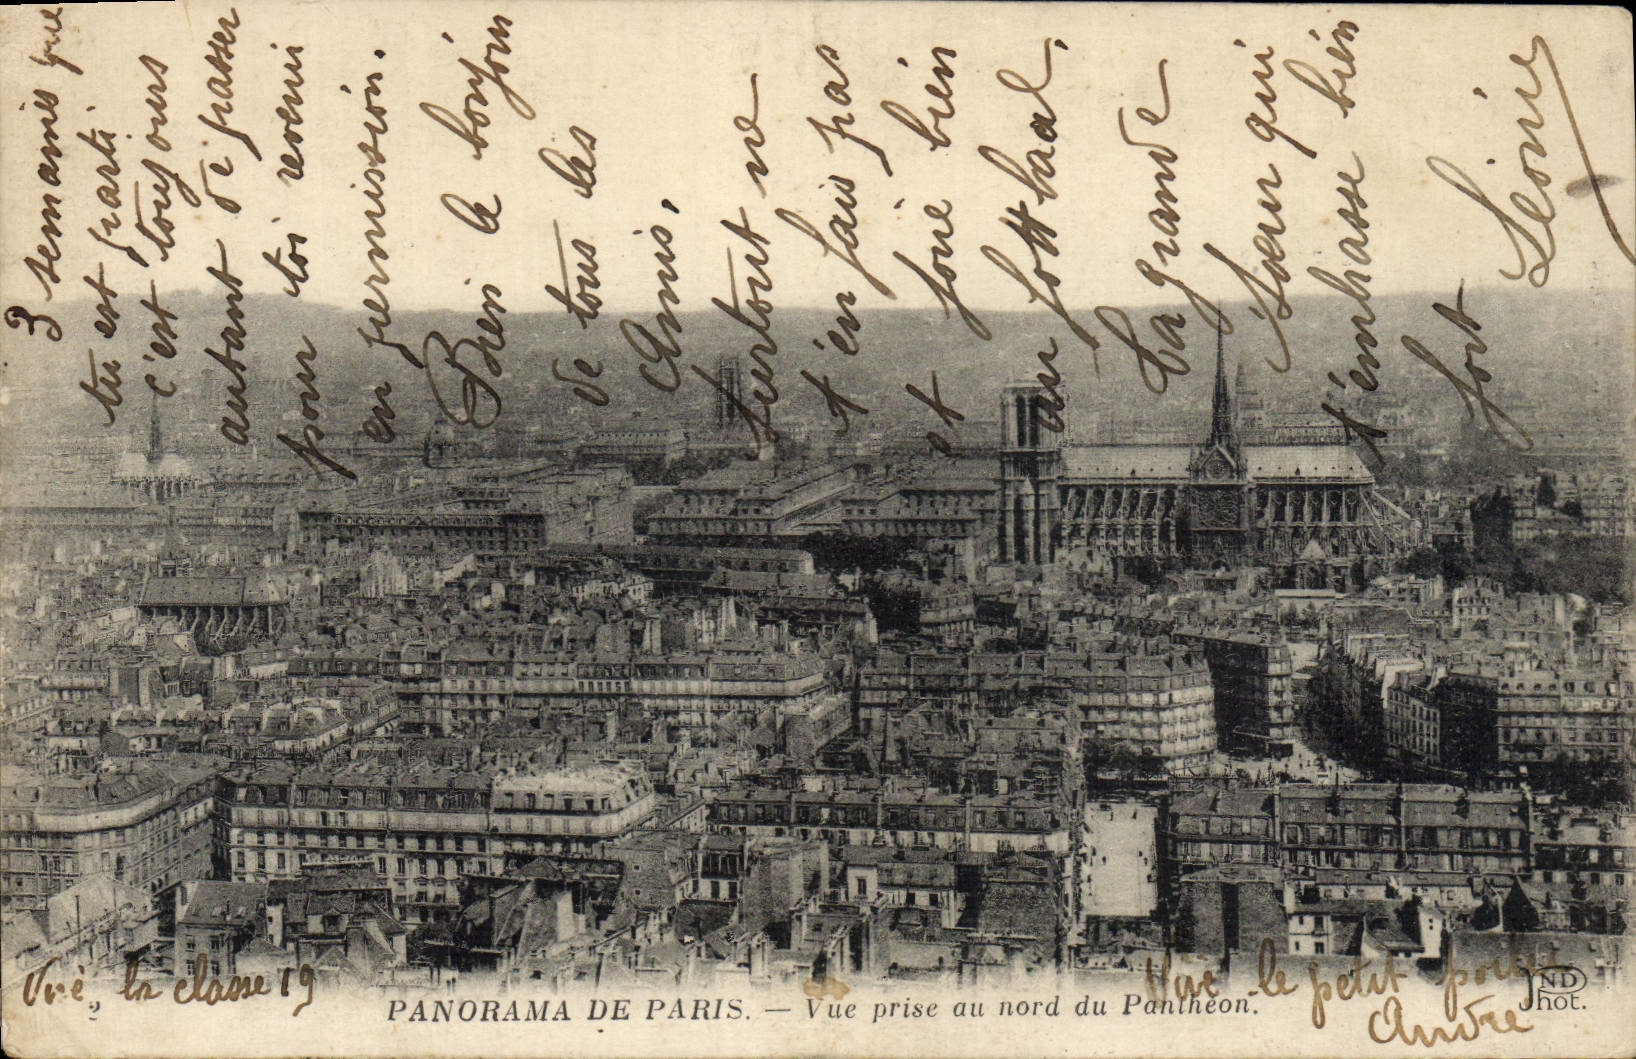 3 semaines que
tu est parti
c'est toujours
autant de passer
pour toi revenir
en permission.
Bien le bonjour
de tous les
Amis,
surtout ne
t'en fais pas
et joue bien
au foot baal,
La grande
Sœur qui
t'embrasse bien
fort
Léonie
Vive la classe 19
Vive le petit
André
2
PANORAMA DE PARIS. — Vue prise au nord du Panthéon.
ND
Phot.